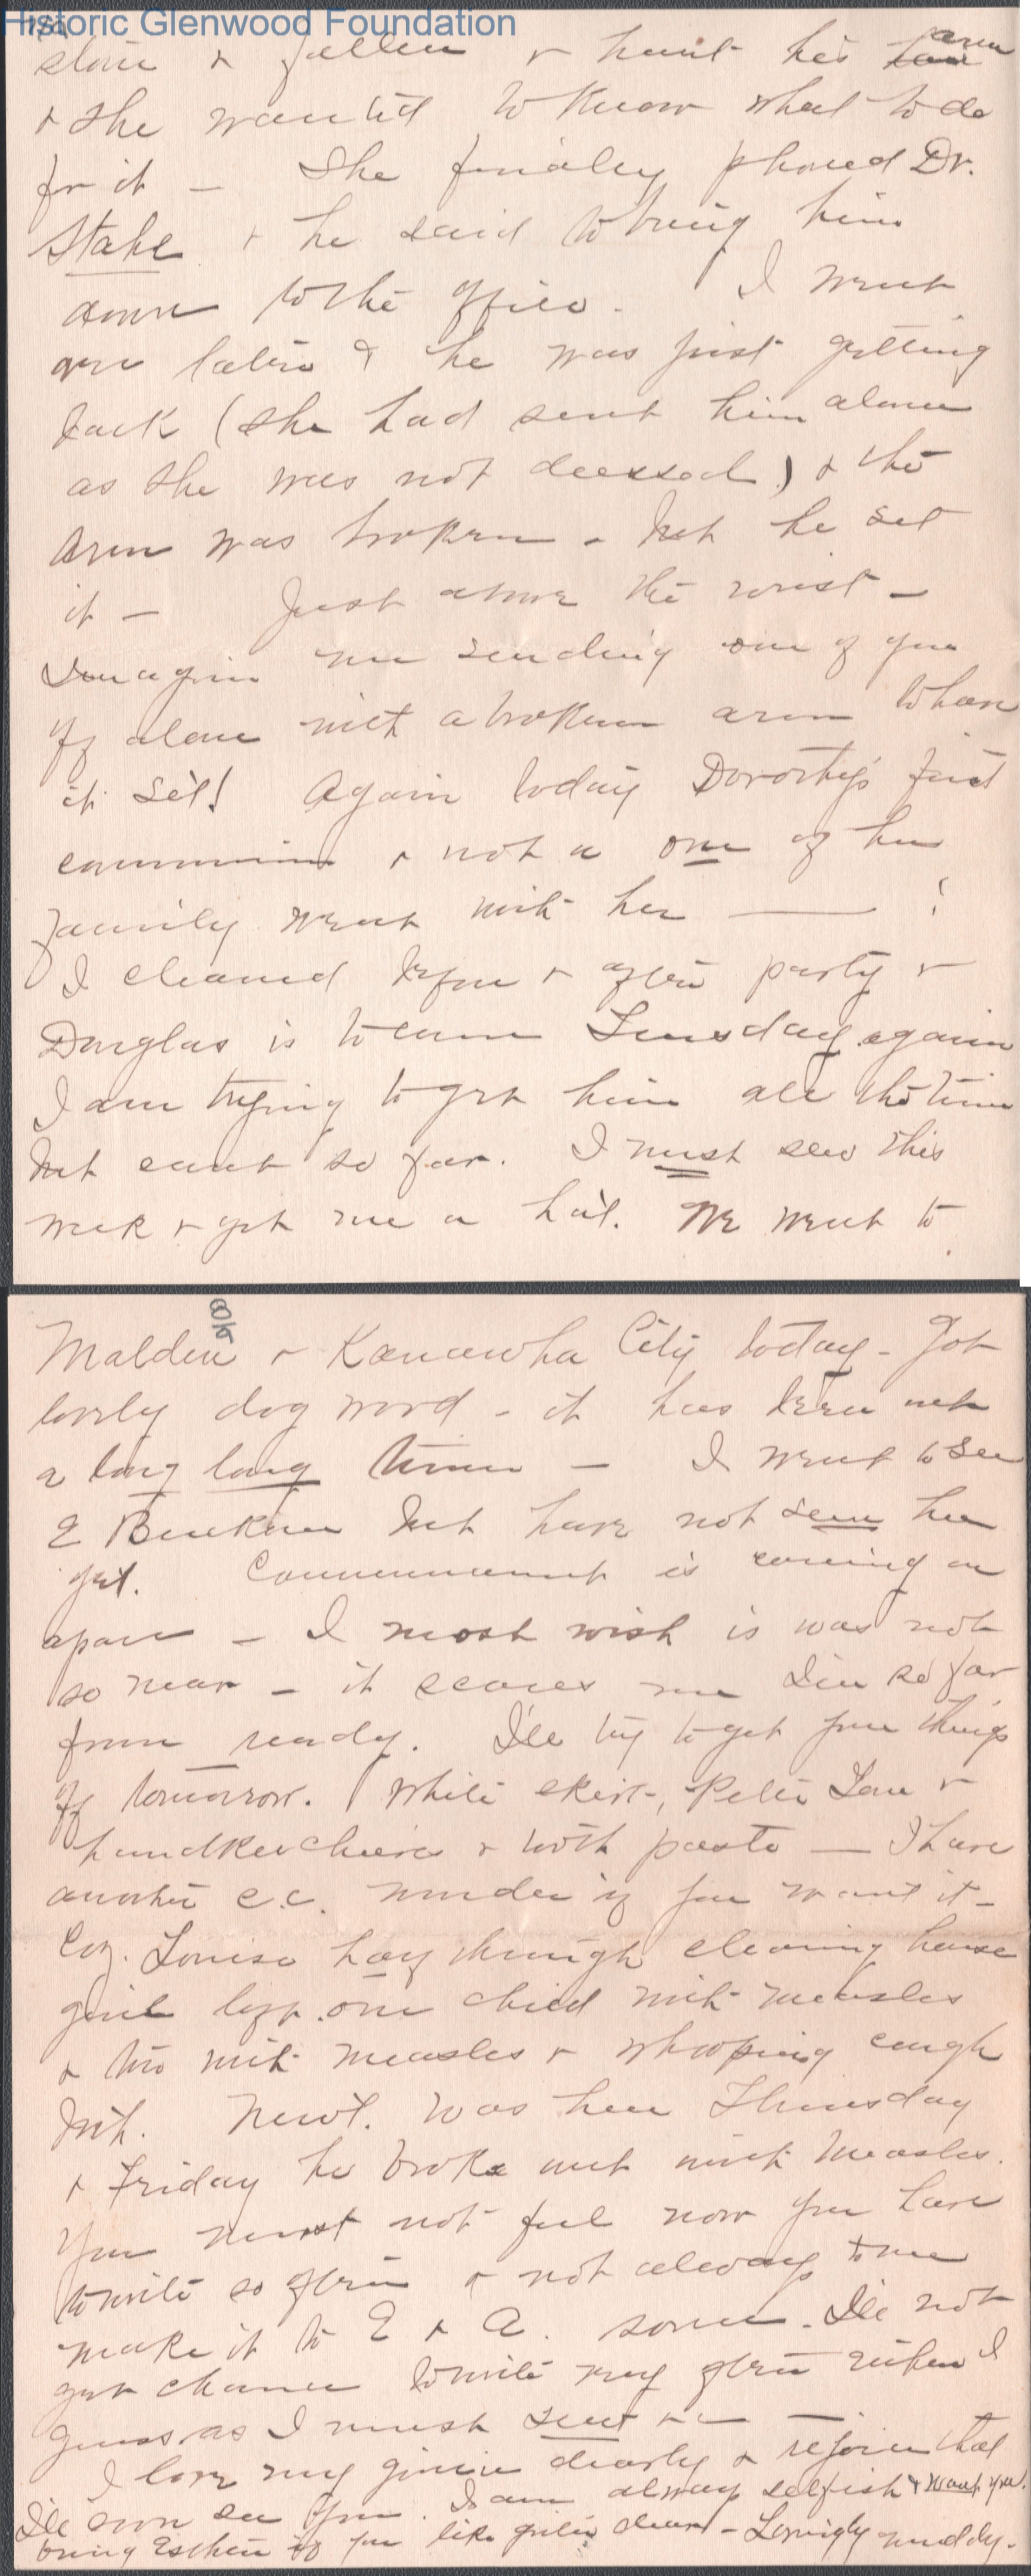 Historic Glenwood Foundation
store & fallen & hurt his arm
& she wanted to know what to do
for it — She finaley phoned Dr.
Stake & he said to bring him
down to the office. I went
over later & he was just getting
back (she had sent him alone
as she was not dressed) & the
arm was broken - but he set
it — Just above the wrist —
Imagin me sending one of you
off alone with a broken arm to have
it set! Again today Dorothy's first
communion & not a one of her
family went with her — !
I cleaned before & after party &
Douglas is to come Tuesday again
I am trying to get him all the time
but cant so far. I must sew this
week & get me a hat. We went to
8/5
Malden & Kanawha City today - Got
lovely dog wood - it has been out
a long long time — I went to see
E but have not seen her
yet. Commencement is coming on
apace — I most wish is was not
so near - it scares me I'm so far
from ready. I'll try to get your things
off tomorrow. White skirt, Peter Pan &
handkerchiefs & tooth paste — I have
another c.c. if you want it -
Coz. Louise through cleaning house
girl left one child with measles
& two with measles & whooping cough
both. Newt. was here Thursday
& Friday he broke out with measles.
You must not feel now you have
to write so often & not always to me
make it to E & A. some. I'll not
get chance to write very often either I
guess as I must
I love my dearly & rejoice that
I'll soon see you. I am always selfish & want you.
bring Esther if you like dear - Lovingly muddy.